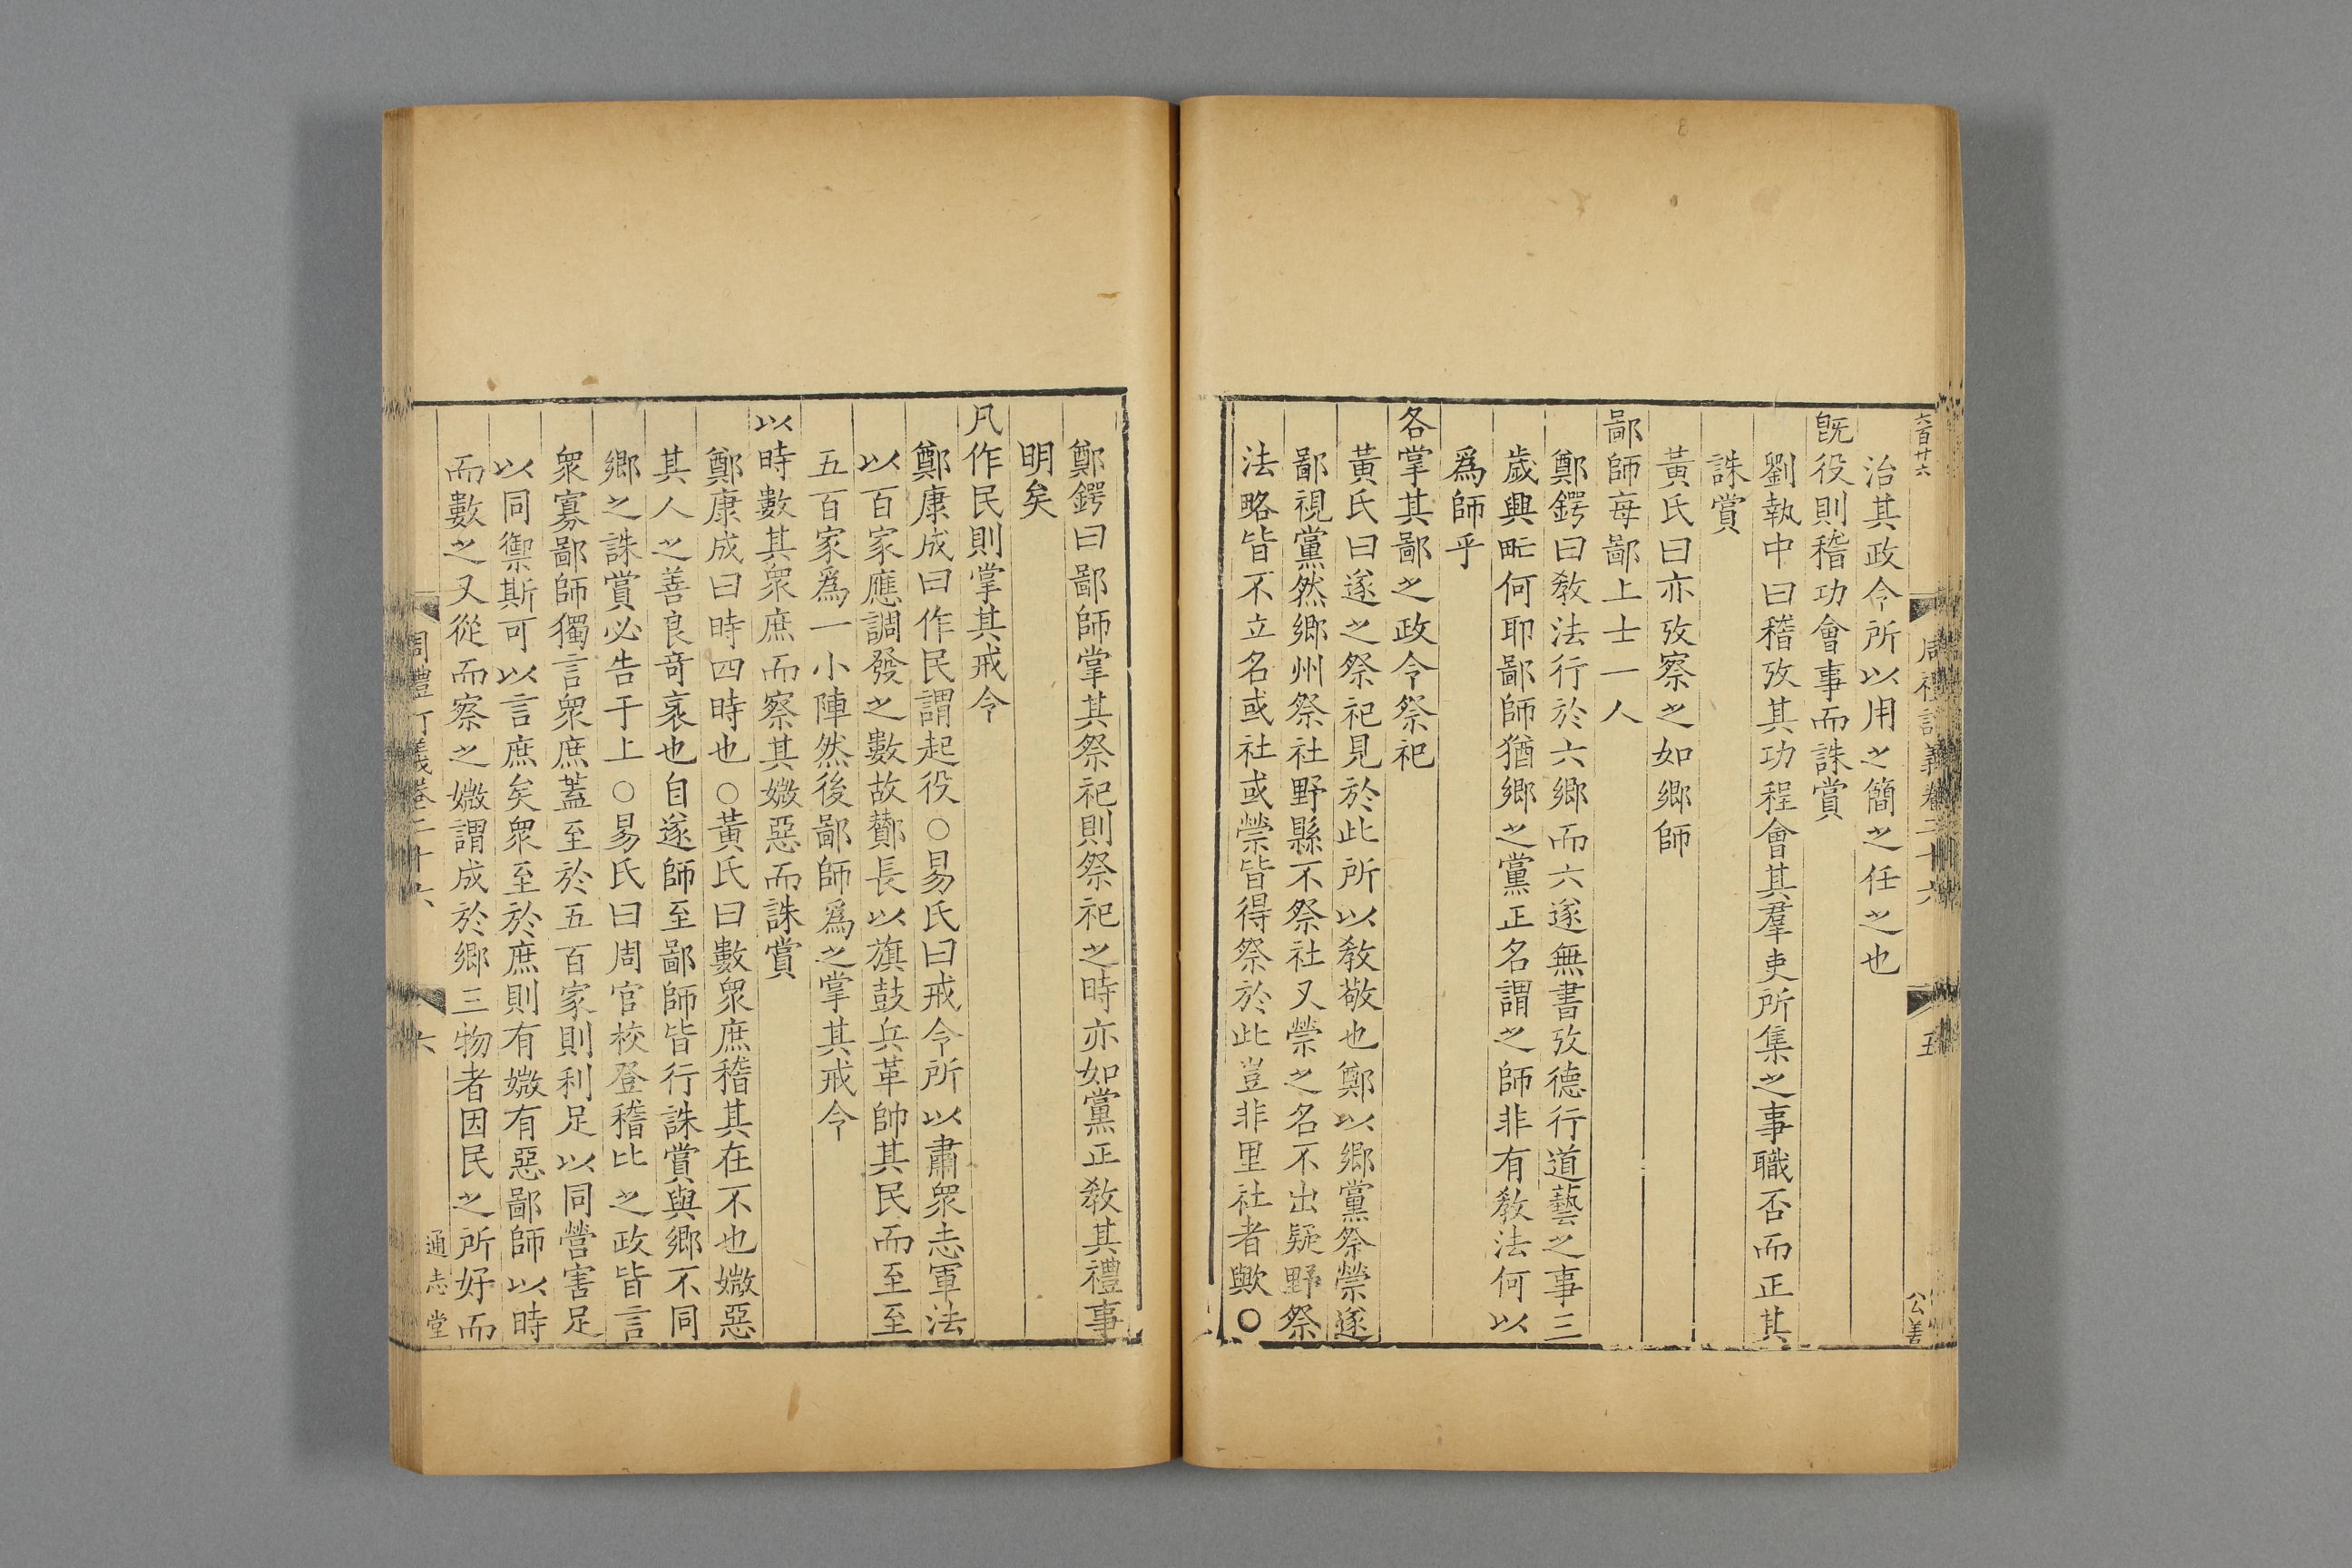 六百廿六
周禮訂義卷二十六
五
公善
治其政令所以用之簡之任之也
旣役則稽功會事而誅賞
劉執中曰稽攷其功程會其羣吏所集之事職否而正其
誅賞
黃氏曰亦攷察之如鄉師
鄙師每鄙上士一人
鄭鍔曰敎法行於六鄉而六遂無書攷德行道藝之事三
歲興甿何耶鄙師猶鄉之黨正名謂之師非有敎法何以
爲師乎
各掌其鄙之政令祭祀
黃氏曰遂之祭祀見於此所以敎敬也鄭以鄉黨祭禜遂
鄙視黨然鄉州祭社野縣不祭社又禜之名不出疑野祭
法略皆不立名或社或禜皆得祭於此豈非里社者歟○
鄭鍔曰鄙師掌其祭祀則祭祀之時亦如黨正敎其禮事
明矣
凡作民則掌其戒令
鄭康成曰作民謂起役○易氏曰戒令所以肅衆志軍法
以百家應調發之數故酇長以旗鼓兵革帥其民而至至
五百家爲一小陣然後鄙師爲之掌其戒令
以時數其衆庶而察其媺惡而誅賞
鄭康成曰時四時也○黃氏曰數衆庶稽其在不也媺惡
其人之善良竒衺也自遂師至鄙師皆行誅賞與鄉不同
鄉之誅賞必告于上○易氏曰周官校登稽比之政皆言
衆寡鄙師獨言衆庶蓋至於五百家則利足以同營害足
以同禦斯可以言庶矣衆至於庶則有媺有惡鄙師以時
而數之又從而察之媺謂成於鄉三物者因民之所好而
周禮訂義卷二十六
六
通志堂